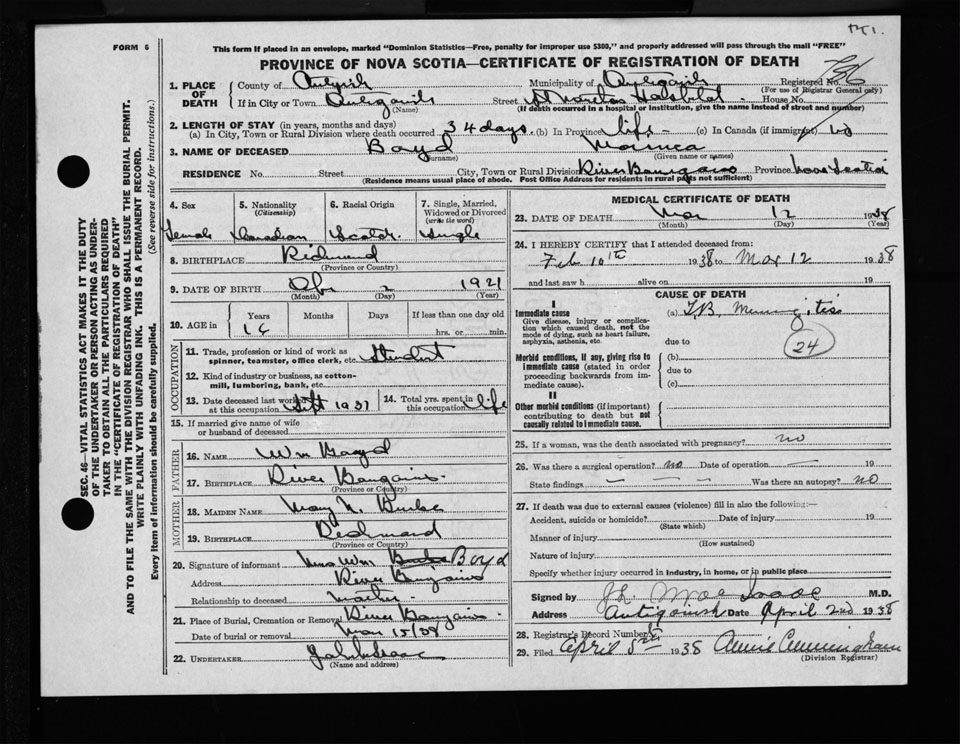 FORM 6
This form if placed in an envelope, marked "Dominion Statistics—Free, penalty for improper use $300," and properly addressed will pass through the mail "FREE"
PROVINCE OF NOVA SCOTIA—CERTIFICATE OF REGISTRATION OF DEATH
1. PLACE OF DEATH
County of
Municipality of
Registered No.
(For use of Registrar General only)
If in City or Town
(Name)
Street
House No.
(If death occurred in a hospital or institution, give the name instead of street and number)
2. LENGTH OF STAY (in years, months and days)
(a) In City, Town or Rural Division where death occurred 34 days (b) In Province life (c) In Canada (if immigrant)
3. NAME OF DECEASED Boyd
(Surname) (Given name or names)
RESIDENCE No. Street City, Town or Rural Division River Province Nova Scotia
(Residence means usual place of abode. Post Office Address for residents in rural parts not sufficient)
4. Sex Female
5. Nationality (Citizenship) Canadian
6. Racial Origin
7. Single, Married, Widowed or Divorced (write the word) Single
8. BIRTHPLACE
(Province or Country)
9. DATE OF BIRTH 2 1921
(Month) (Day) (Year)
10. AGE in Years Months Days If less than one day old
16 hrs. or min.
OCCUPATION
11. Trade, profession or kind of work as spinner, teamster, office clerk, etc. Student
12. Kind of industry or business, as cotton-mill, lumbering, bank, etc.
13. Date deceased last worked at this occupation Sept 1937
14. Total yrs. spent in this occupation life
15. If married give name of wife or husband of deceased
FATHER
16. NAME Wm Boyd
17. BIRTHPLACE River
(Province or Country)
MOTHER
18. MAIDEN NAME Mary
19. BIRTHPLACE
(Province or Country)
20. Signature of informant Mrs Wm Boyd
Address River
Relationship to deceased mother
21. Place of Burial, Cremation or Removal River
Date of burial or removal Mar 15/38
22. UNDERTAKER
(Name and address)
MEDICAL CERTIFICATE OF DEATH
23. DATE OF DEATH Mar 12 1938
(Month) (Day) (Year)
24. I HEREBY CERTIFY that I attended deceased from:
Feb 10th 1938 to Mar 12 1938
and last saw h alive on 19
CAUSE OF DEATH
I
Immediate cause
Give disease, injury or complication which caused death, not the mode of dying, such as heart failure, asphyxia, asthenia, etc.
(a) T.B. Meningitis
24
due to
Morbid conditions, if any, giving rise to immediate cause (stated in order proceeding backwards from immediate cause).
(b)
due to
(c)
II
Other morbid conditions (if important) contributing to death but not causally related to immediate cause.
25. If a woman, was the death associated with pregnancy? no
26. Was there a surgical operation? no Date of operation — 19
State findings — — — Was there an autopsy? no
27. If death was due to external causes (violence) fill in also the following:—
Accident, suicide or homicide? Date of injury 19
(State which)
Manner of injury
(How sustained)
Nature of injury
Specify whether injury occurred in industry, in home, or in public place
Signed by MacIsaac M.D.
Address Antigonish Date April 2nd 1938
28. Registrar's Record Number
29. Filed April 5th 1938 Annie Cunningham
(Division Registrar)
SEC. 46—VITAL STATISTICS ACT MAKES IT THE DUTY
OF THE UNDERTAKER OR PERSON ACTING AS UNDER-
TAKER TO OBTAIN ALL THE PARTICULARS REQUIRED
IN THE "CERTIFICATE OF REGISTRATION OF DEATH"
AND TO FILE THE SAME WITH THE DIVISION REGISTRAR WHO SHALL ISSUE THE BURIAL PERMIT.
WRITE PLAINLY WITH UNFADING INK. THIS IS A PERMANENT RECORD.
Every item of information should be carefully supplied. (See reverse side for instructions.)